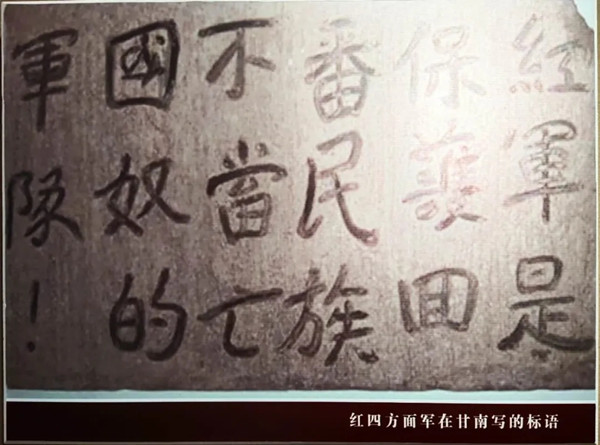 紅軍是
保護回
番民族
不當亡
國奴的
軍隊！
红四方面军在甘南写的标语